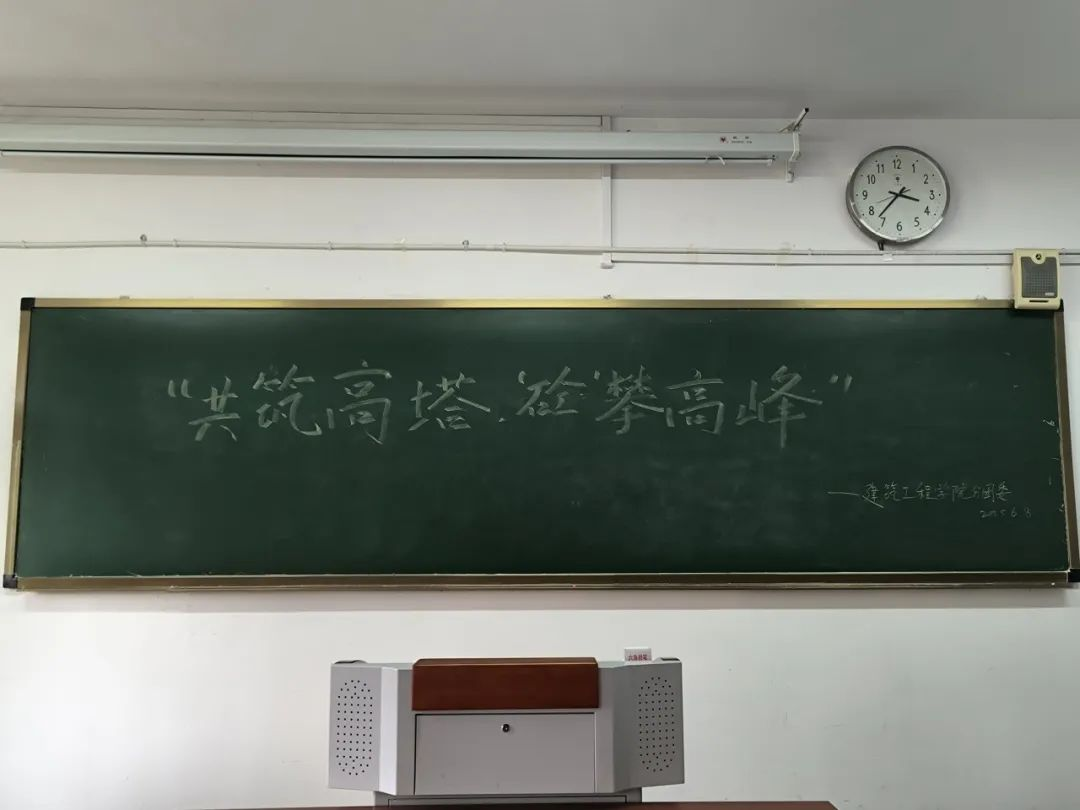 “共筑高塔，‘砼’攀高峰”
——建筑工程学院分团委
2025.6.8
12
1
2
3
4
5
6
7
8
9
10
11